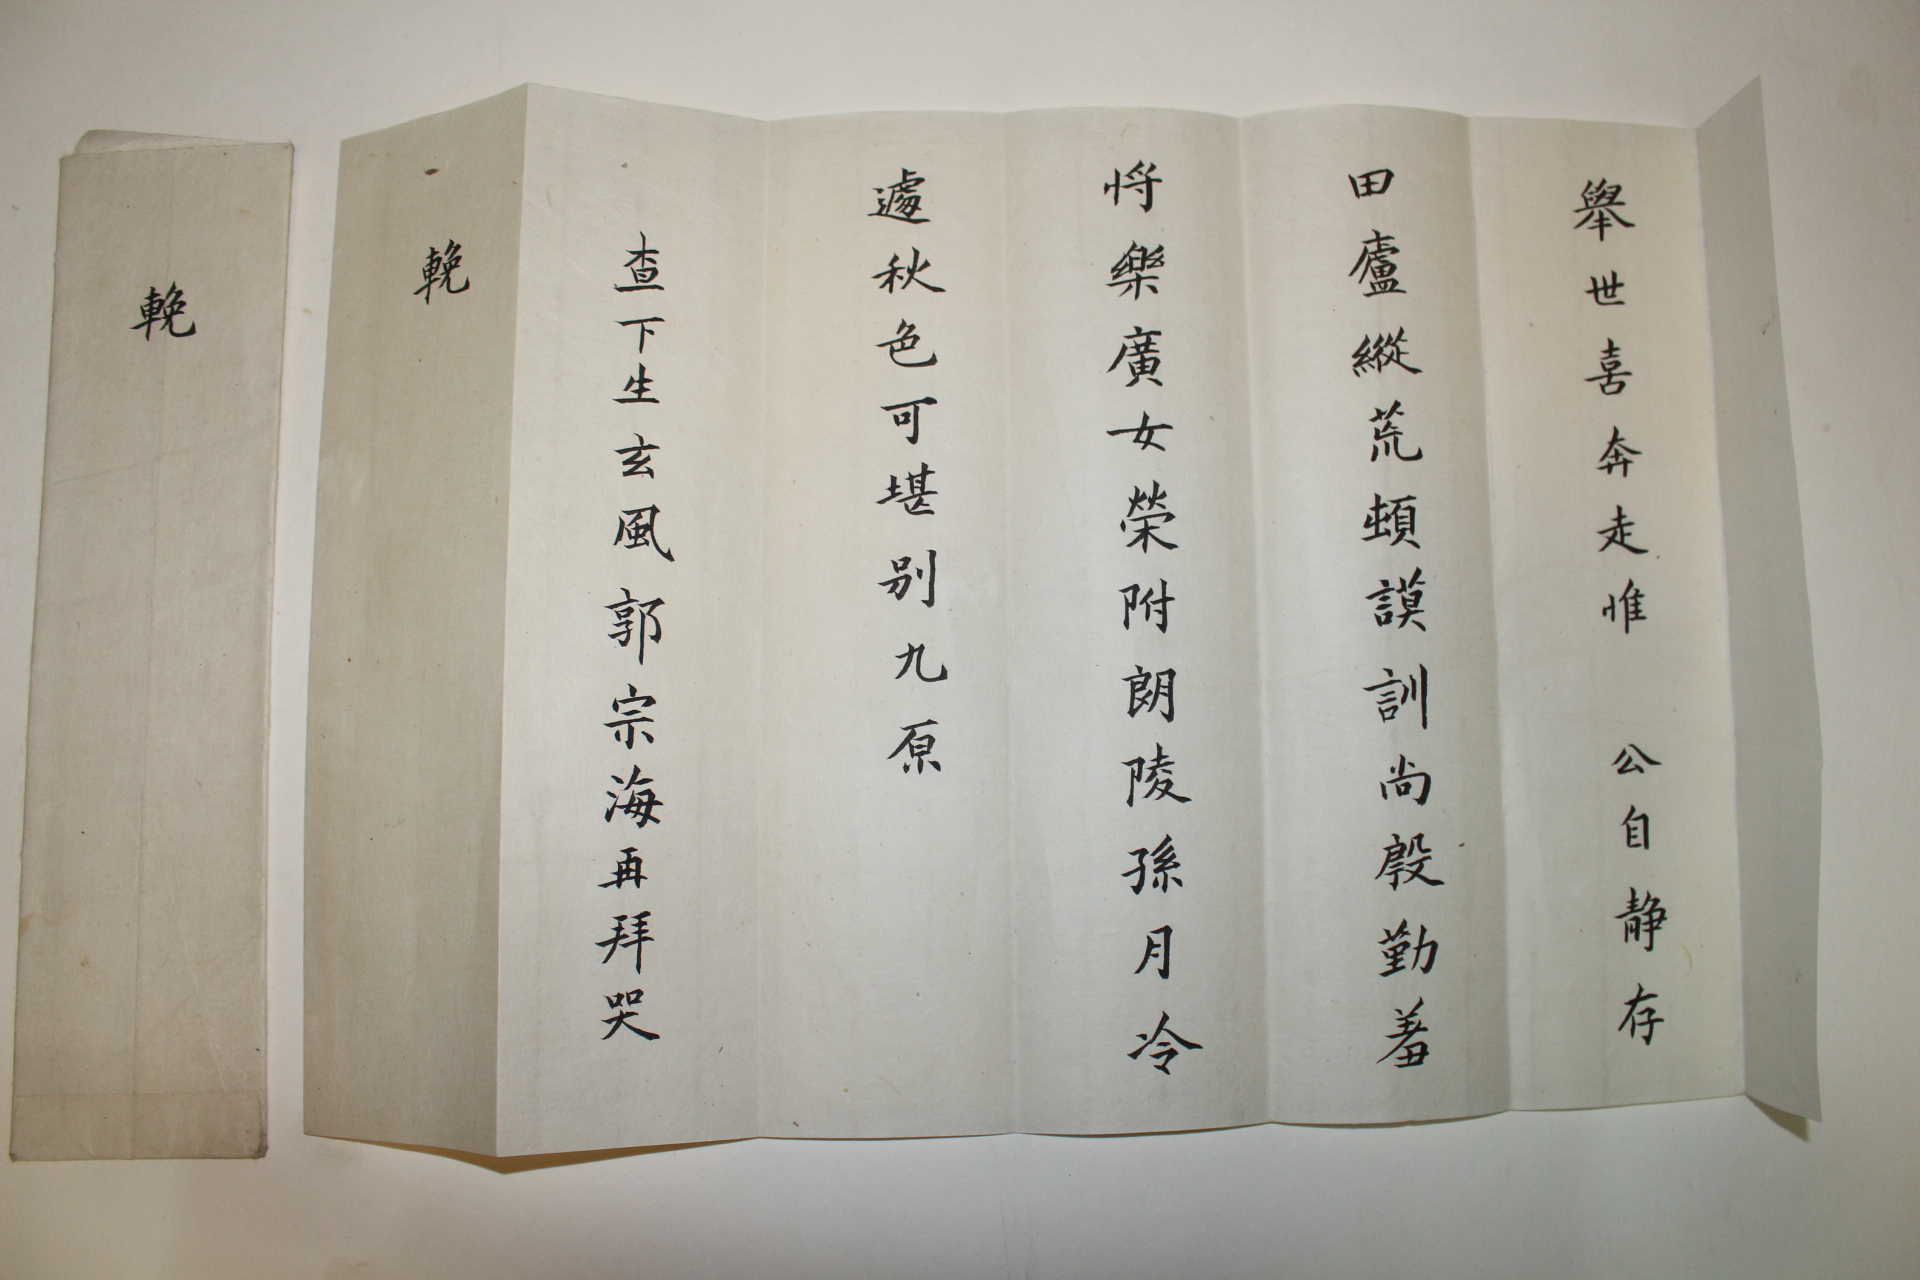 舉世喜奔走惟 公自静存
田廬縱荒頓謨訓尚殷勤羞
将樂廣女榮附朗陵孫月冷
遽秋色可堪别九原
查下生玄風郭宗海再拜哭
輓
輓